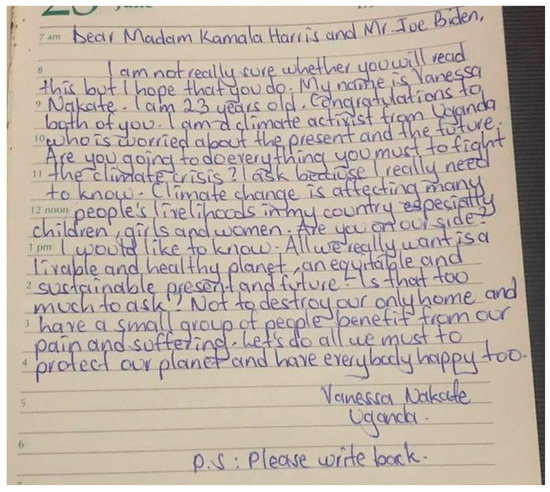 7 am Dear Madam Kamala Harris and Mr. Joe Biden,
8 I am not really sure whether you will read
this but I hope that you do. My name is Vanessa
9 Nakate. I am 23 years old. Congratulations to
both of you. I am a climate activist from Uganda
10 who is worried about the present and the future.
Are you going to do everything you must to fight
11 the climate crisis? I ask because I really need
to know. Climate change is affecting many
12 noon people's livelihoods in my country especially
children, girls and women. Are you on our side?
1 pm I would like to know. All we really want is a
livable and healthy planet, an equitable and
2 sustainable present and future. Is that too
much to ask? Not to destroy our only home and
3 have a small group of people benefit from our
pain and suffering. Let's do all we must to
4 protect our planet and have everybody happy too.
Vanessa Nakate
5
Uganda.
6
P.S: Please write back.